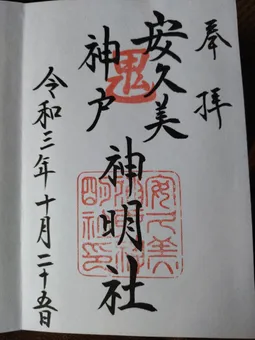 奉拝
安久美
神戸
神明社
鬼
安久美
神戸神
明社印
令和三年十月二十五日